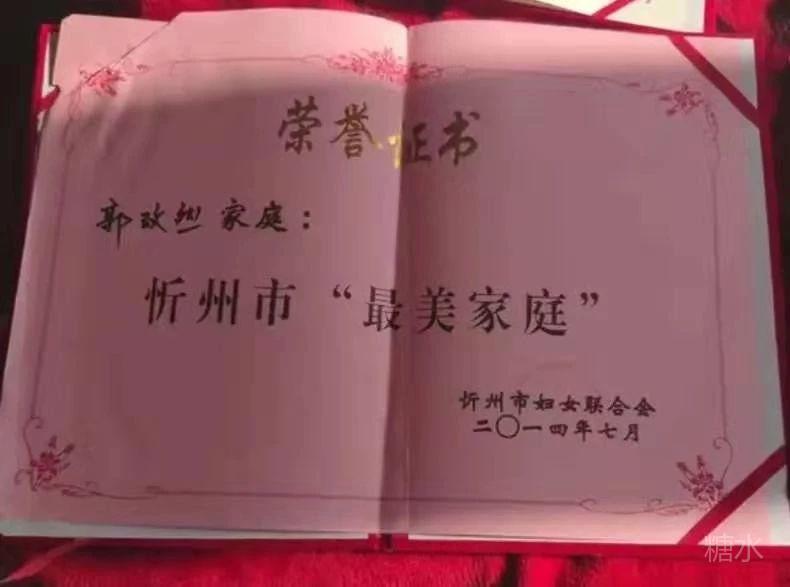 荣誉证书
郭改烈家庭:
忻州市“最美家庭”
忻州市妇女联合会
二〇一四年七月
糖水